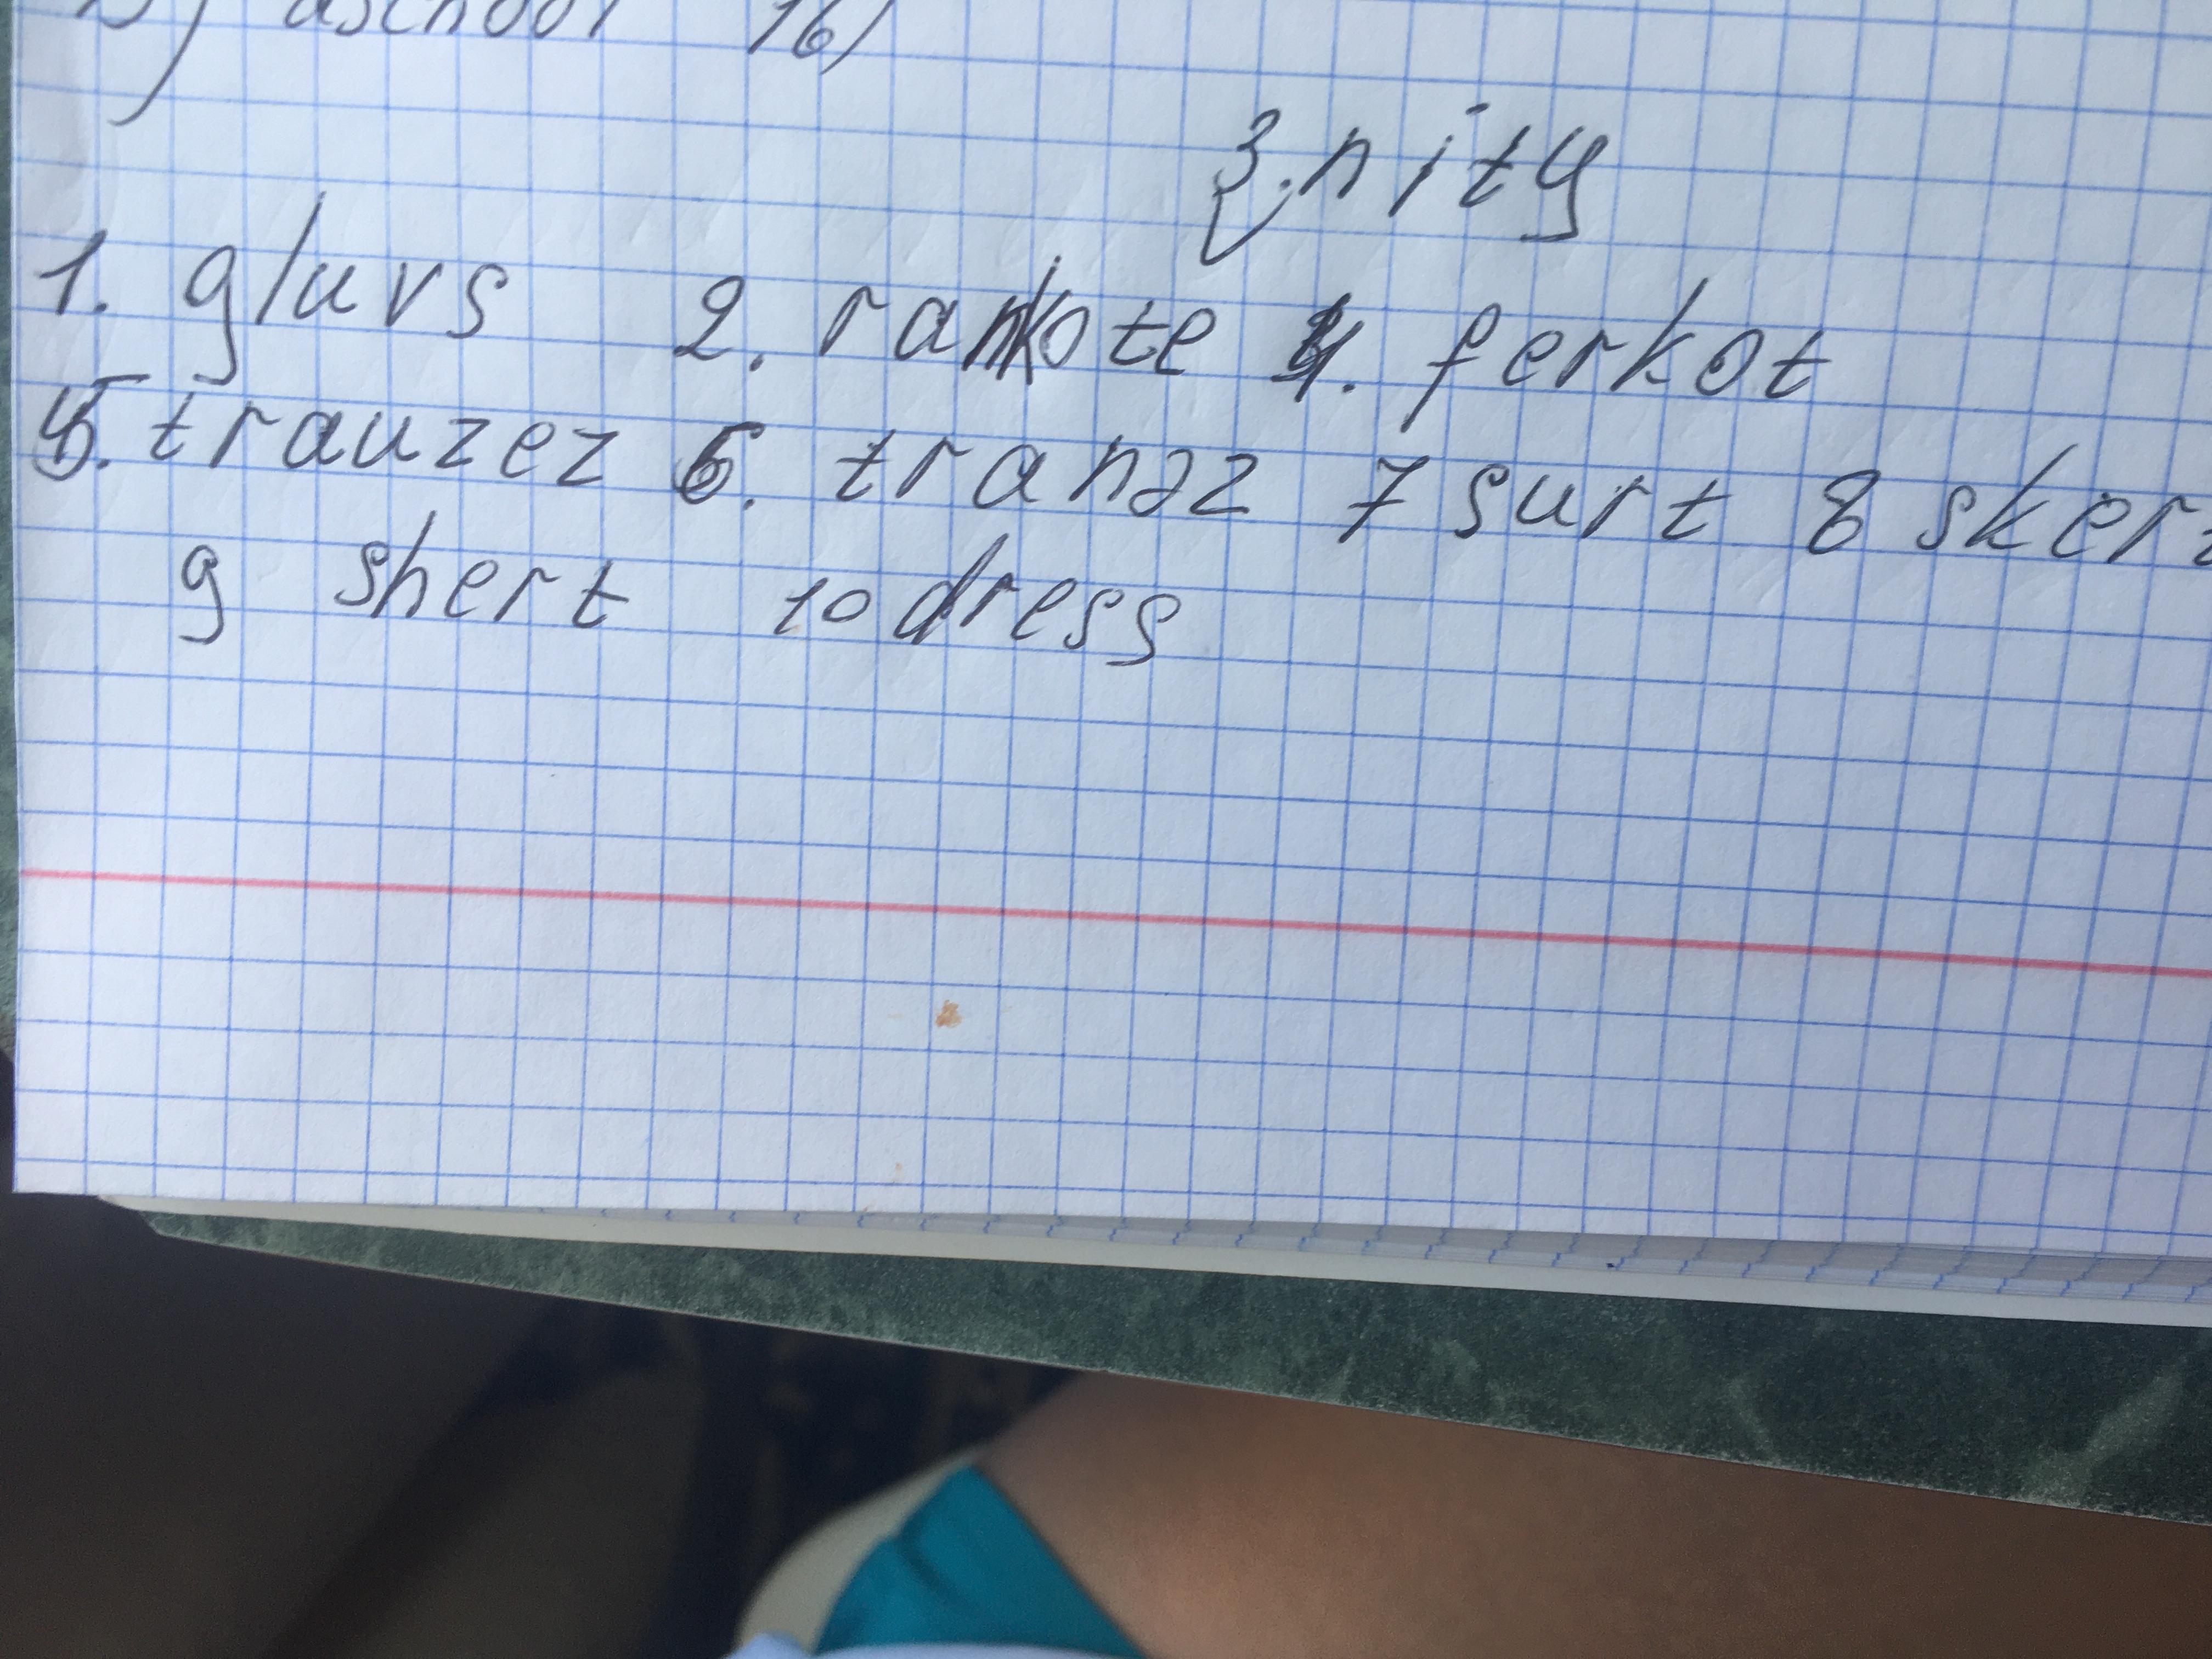 aschool 16)
3. nity
1. gluvs 2. rankote 4. ferkot
5. trauzez 6. tranzz 7 surt 8 skert
9 shert 10 dress